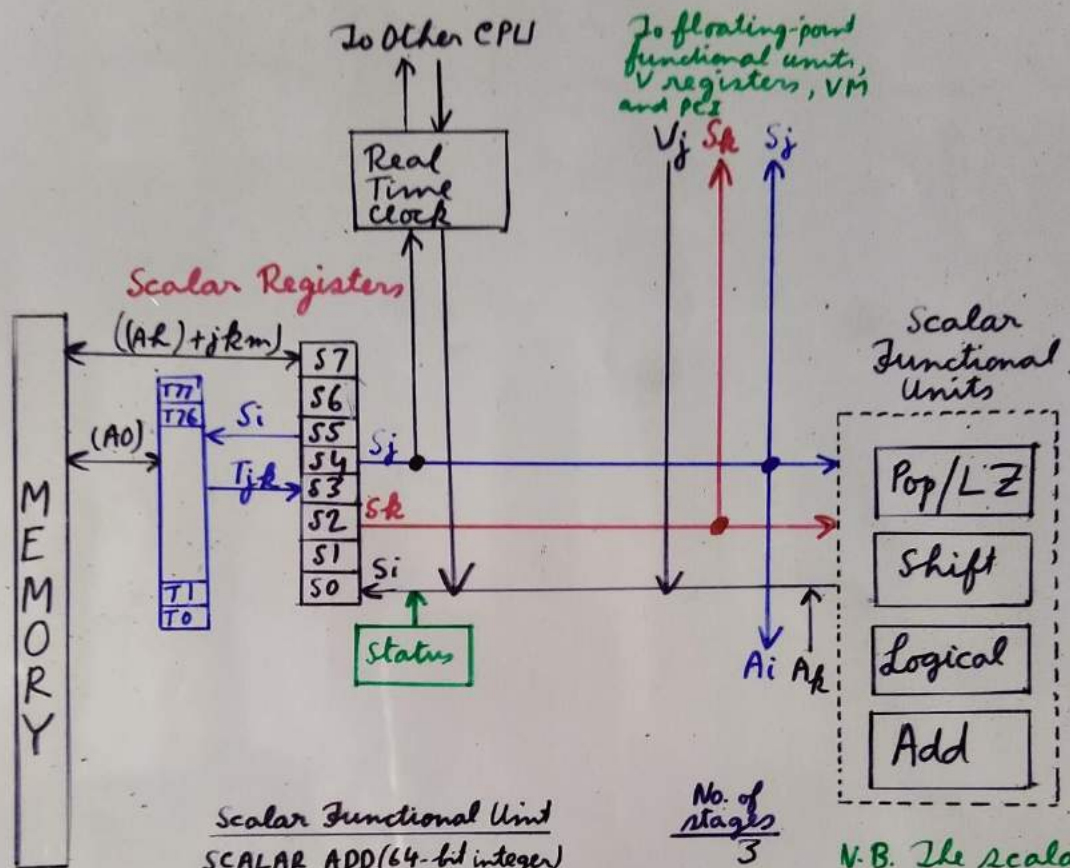 To Other CPU
To floating-point
functional units,
V registers, VM
and PCI
Real
Time
Clock
Vj Sk Sj
Scalar Registers
((Ah)+jkm)
(A0)
MEMORY
T77
T76
T1
T0
Si
Tjk
S7
S6
S5
S4
S3
S2
S1
S0
Sj
Sk
Si
Status
Ai Ak
Scalar
Functional
Units
Pop/LZ
Shift
Logical
Add
Scalar Functional Unit
No. of
stages
SCALAR ADD (64-bit integer)
3
N.B. The scala